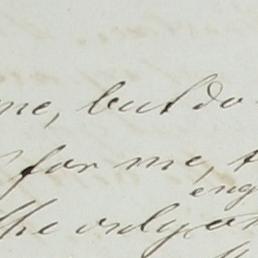 me, but do
for me,
eng
the only